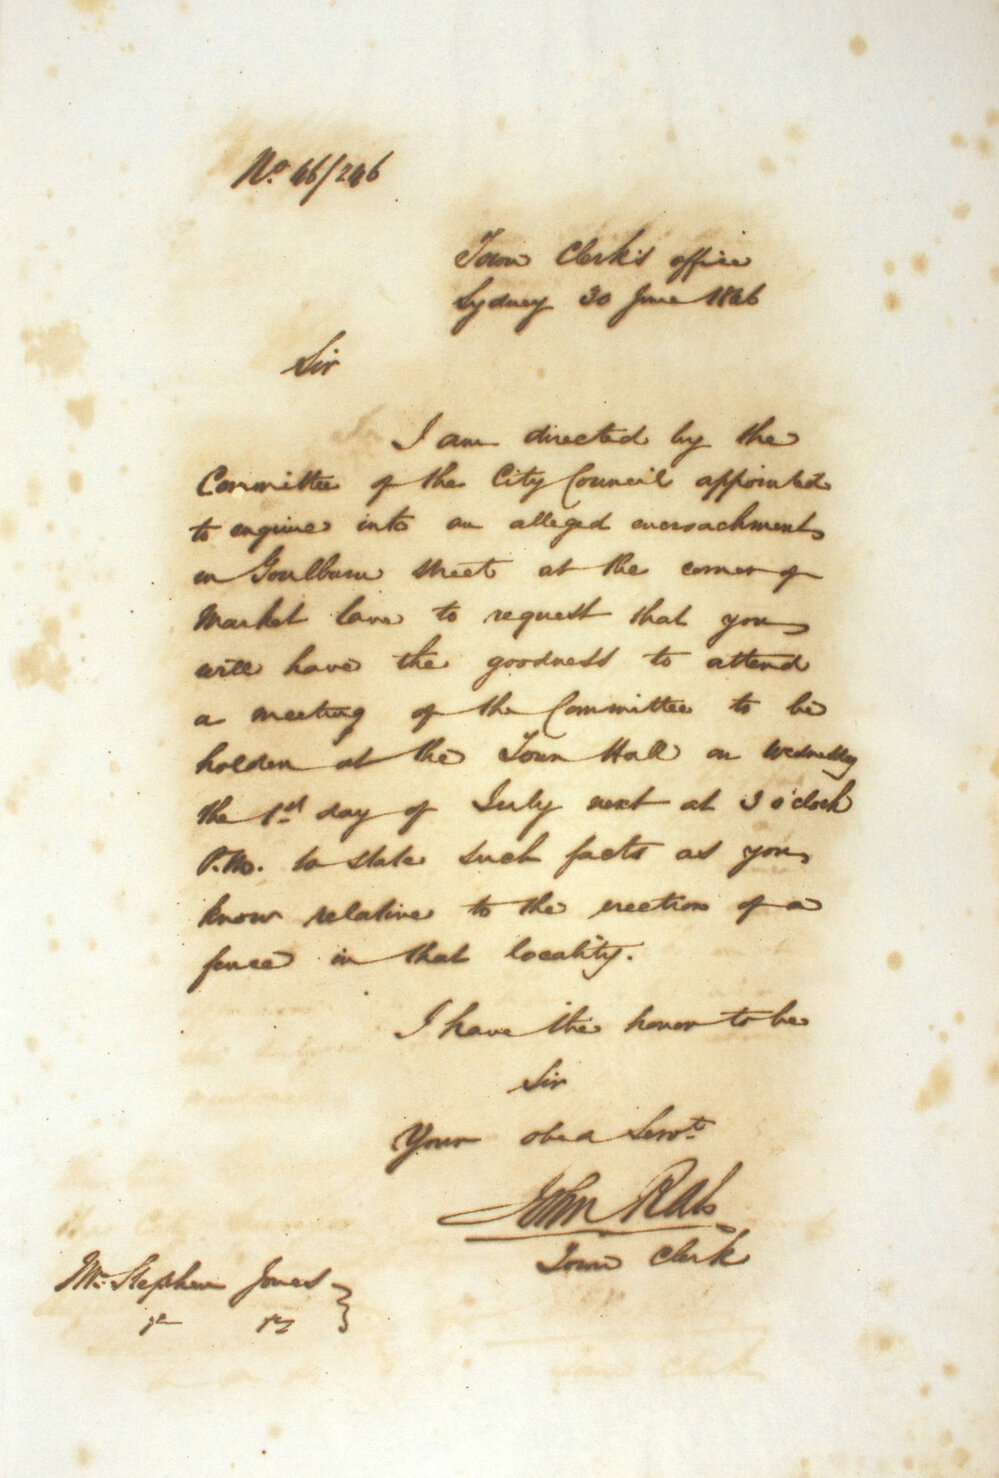 No. 46/246
Town Clerk's office
Sydney 30 June 1846
Sir
I am directed by the
Committee of the City Council appointed
to enquire into an alleged encroachment
in Goulburn street at the corner of
Market lane to request that you
will have the goodness to attend
a meeting of the Committee to be
holden at the Town Hall on Wednesday
the 1st day of July next at 3 o'clock
P.M. to state such facts as you
know relative to the erection of a
fence in that locality.
I have the honor to be
Sir
Your obed Servt
John Rae
Town Clerk
Mr. Stephen Jones